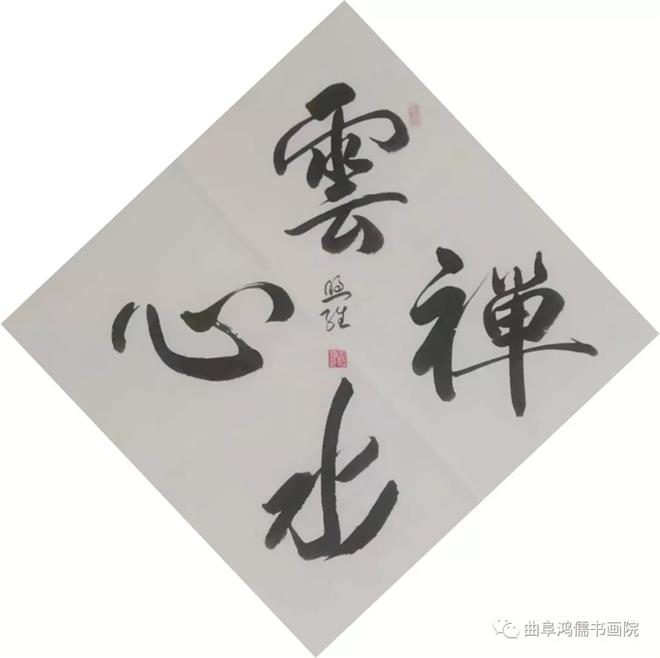 雲
水
禅
心
曲阜鸿儒书画院